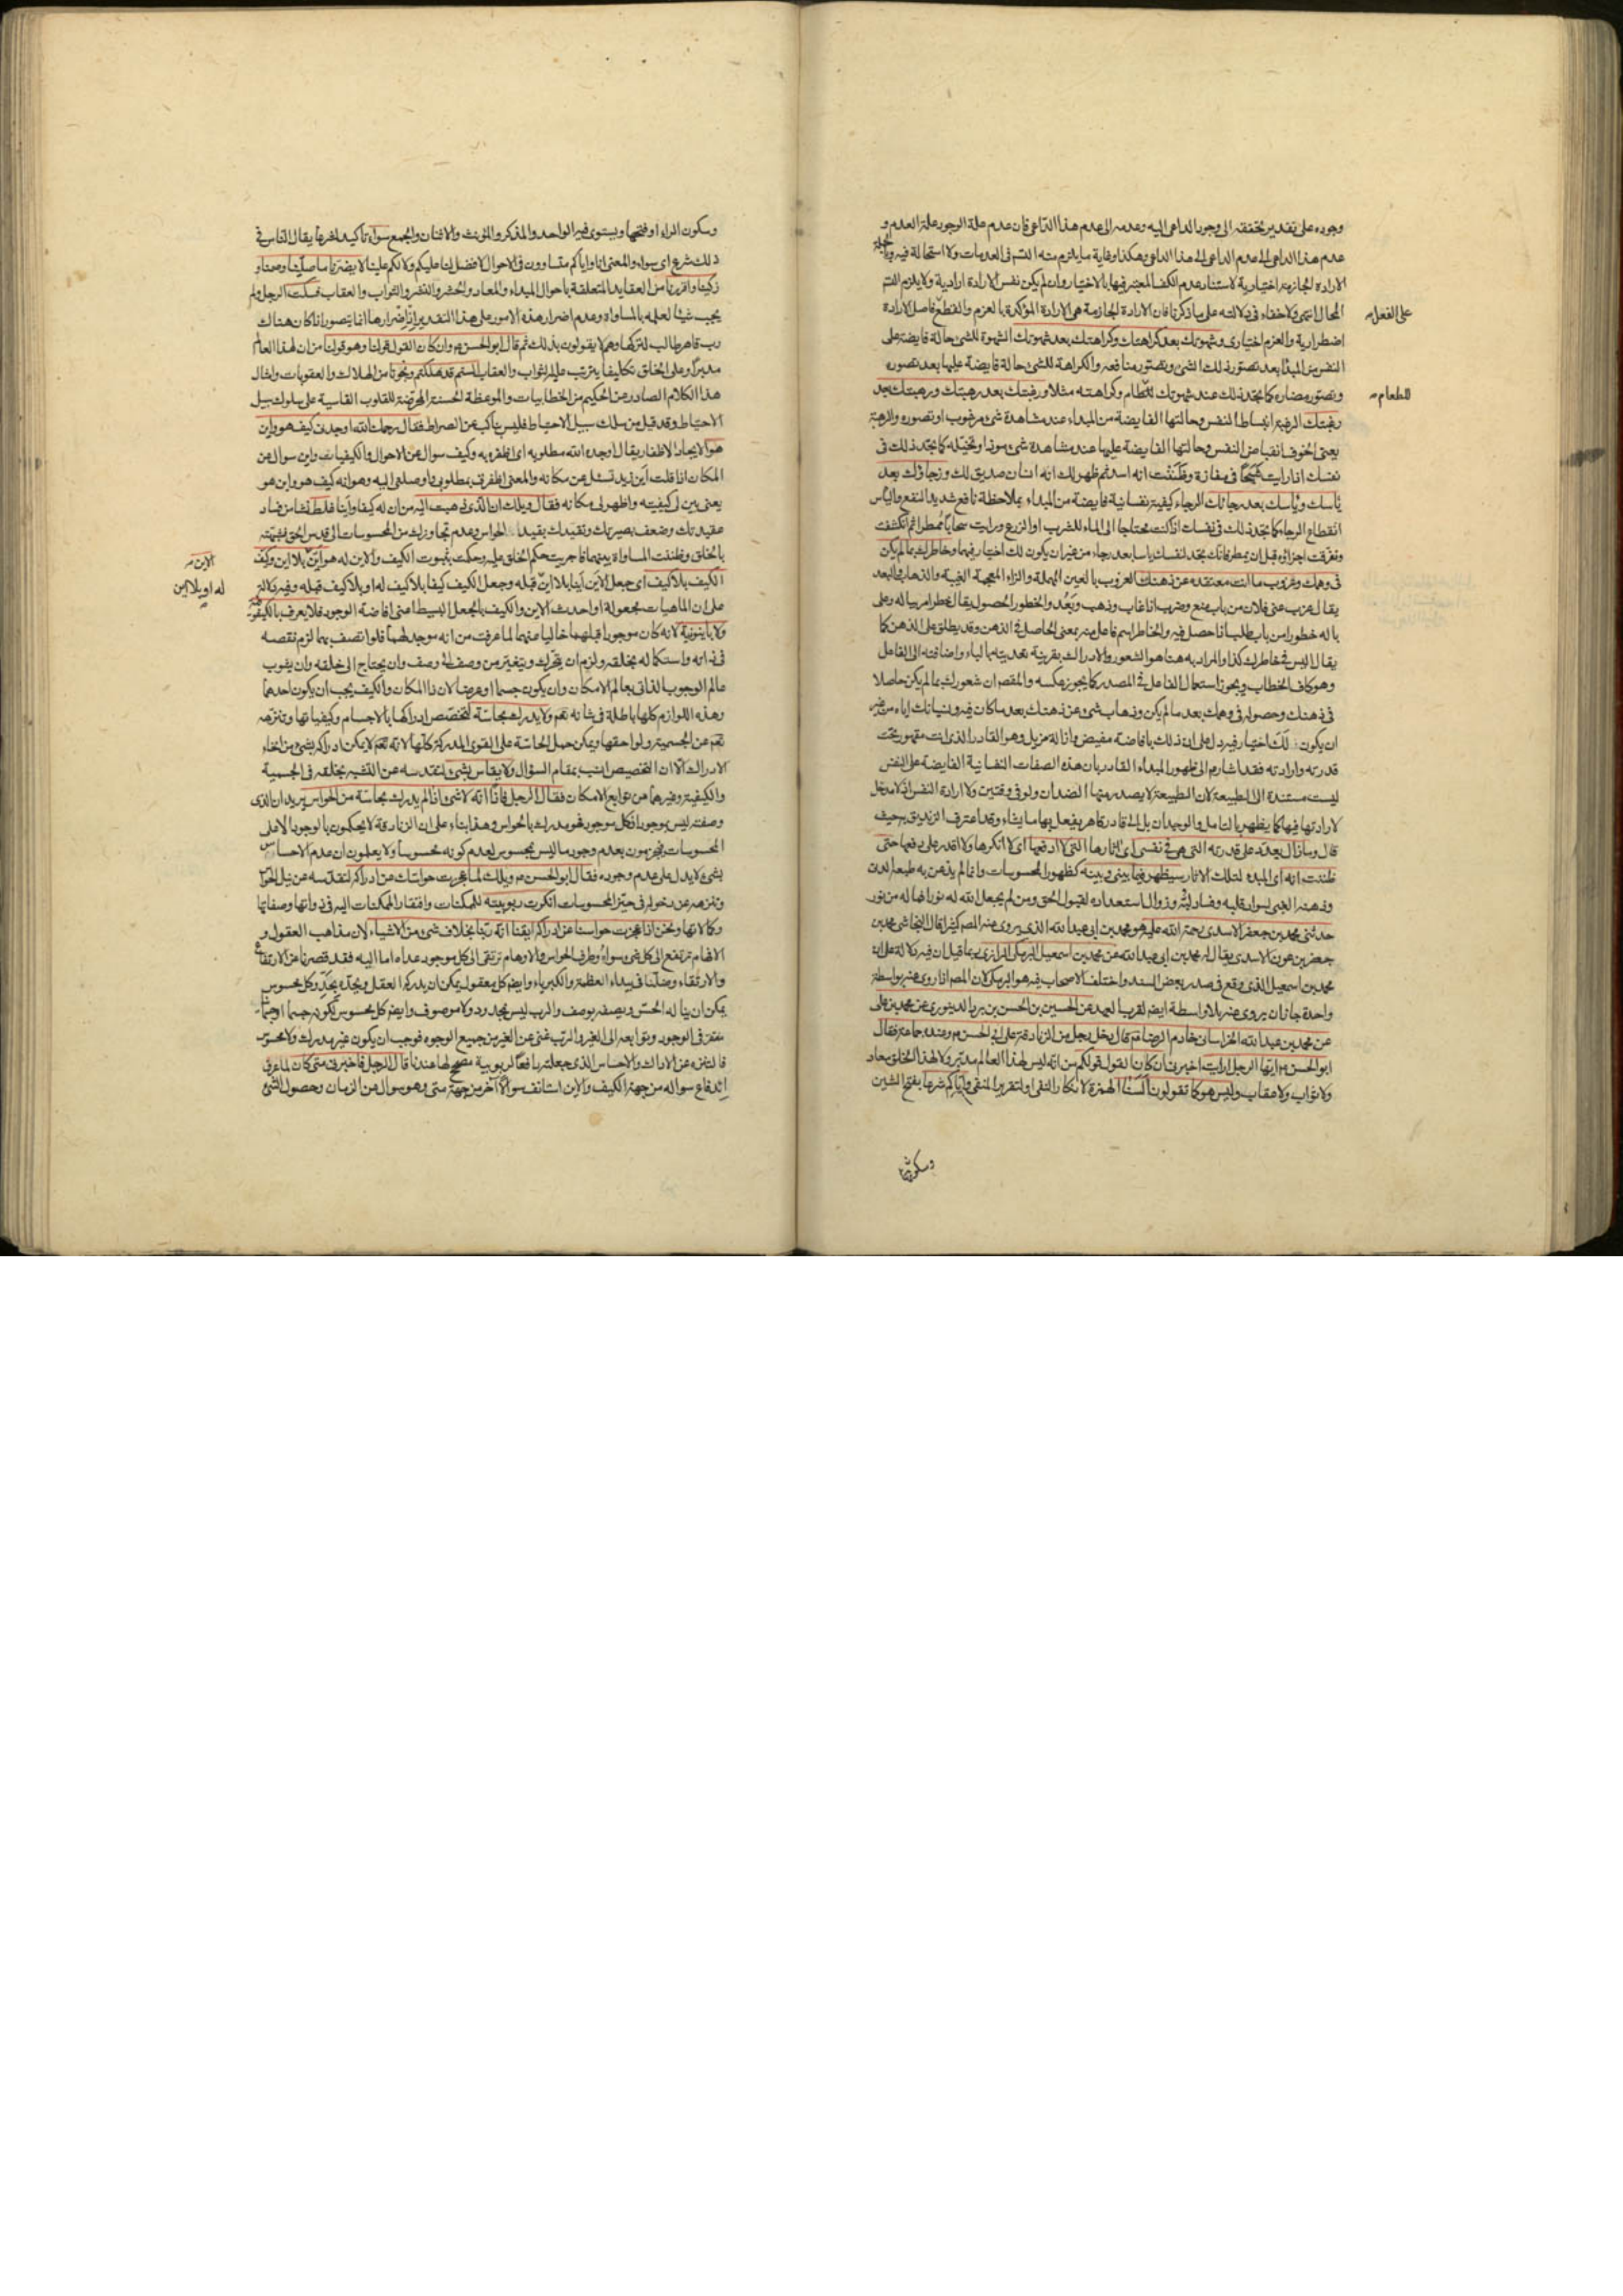 وجوده على تقدير تحققه الى وجود الداعى اليه وعدمه الى عدم هذا الداعى فان عدم علة الوجود علة العدم و
عدم هذا الداعى الى عدم الداعى الى هذا الداعى وهكذا وغاية ما يلزم منه التس فى العدميات ولا استحالة فيه وبالجملة
الارادة الجازمة اختيارية لاستناد عدم الكف المعتبر فيها بالاختيار وان لم يكن نفس الارادة ارادية ولا يلزم التس
المحال انتهى ولا خفاء فى دلالته على ما ذكرنا فان الارادة الجازمة هى الارادة المؤكدة بالعزم والقطع فاصل الارادة
على الفعل
اضطرارية والعزم اختيارى وشهوتك بعد كراهتك وكراهتك بعد شهوتك الشهوة للشئ حالة فايضة على
النفس من المبدا بعد تصور ذلك الشئ وتصور منافعه والكراهة للشئ حالة فايضة عليها بعد تصوره
وتصور مضاره كما تجد ذلك عند شهوتك للطعام وكراهته مثلا ورغبتك بعد رهبتك ورهبتك بعد
للطعام
رغبتك الرغبة انبساط النفس وحالتها الفايضة من المبداء عند مشاهدة شئ مرغوب او تصوره والرهبة
يعنى الخوف انقباض النفس وحالتها الفايضة عليها عند مشاهدة شئ موذ او تخيله كما تجد ذلك فى
نفسك اذا رايت شبحا فى مفازة وظننت انه اسد ثم ظهر لك انه انسان صديق لك ورجاؤك بعد
يأسك ويأسك بعد رجائك الرجاء كيفية نفسانية فايضة من المبداء بملاحظة نافع شديد النفع واليأس
انقطاع الرجاء كما تجد ذلك فى نفسك اذا كنت محتاجا الى الماء للشرب او الزرع ورايت سحابا ممطرا ثم انكشفت
وتفرقت اجزاؤه قبل ان يمطر فانك تجد لنفسك ياسا بعد رجاء من غير ان يكون لك اختيار فيهما وخاطرك بما لم يكن
فى وهمك وعزوب ما انت معتقده عن ذهنك العزوب بالعين المهملة والزاء المعجمة الغيبة والذهاب والبعد
يقال عزب عنى فلان من باب منع وضرب اذا غاب وذهب وبعد والخطور الحصول يقال خطر امر بباله وعلى
باله خطورا من باب طلب اذا حصل فيه والخاطر اسم فاعل منه بمعنى الحاصل فى الذهن وقد يطلق على الذهن كما
يقال اليس فى خاطرك كذا والمراد به هنا هو الشعور والادراك بقرينة تعديته بالباء واضافته الى الفاعل
وهو كاف الخطاب ويجوز استعمال الفاعل فى المصدر كما يجوز عكسه والمقصد ان شعورك بما لم يكن حاصلا
فى ذهنك وحصوله فى وهمك بعد ما لم يكن وذهاب شئ عن ذهنك بعد ما كان فيه ونسيانك اياه من غير
ان يكون لك اختيار فيه دل على ان ذلك بافاضة مفيض وازالة مزيل وهو القادر الذى انت مقهور تحت
قدرته وارادته فقد اشار م الى ظهور المبداء القادر بان هذه الصفات النفسانية الفايضة على النفس
ليست مستندة الى الطبيعة لان الطبيعة لا يصدر منها الضدان ولو فى وقتين ولا ارادة النفس اذ لا مدخل
لارادتها فيها كما يظهر بالتامل والوجدان بل الى قادر قاهر يفعل بها ما يشاء وقد اعترف الزنديق به حيث
قال وما زال يعدد على قدرته التى هى فى نفسى اى اثارها التى لا ادفعها اى لا انكرها ولا اقدر على دفعها حتى
ظننت انه اى المبدء لتلك الاثار سيظهر فيما بينى وبينه كظهور المحسوسات وانما لم يذعن به طبعه
وذهنه الغبى لسواد قلبه وفساد وزوال استعداده لقبول الحق ومن لم يجعل الله له نورا فما له من نور
حدثنى محمد بن جعفر الاسدى رحمة الله عليه هو محمد بن ابى عبد الله الذى يروى عنه المصـ كثيرا قال النجاشى محمد بن
جعفر بن عون الاسدى يقال له محمد بن ابى عبد الله عن محمد بن اسمعيل البرمكى الرازى ربما قيل ان فيه دلالة على ان
محمد بن اسمعيل الذى وقع فى صدر بعض السند واختلف الاصحاب فيه هو البرمكى لان المصـ اذا روى عنه بواسطة
واحدة جاز ان يروى عنه بلا واسطة ايضا لقرب العهد عن الحسين بن الحسن بن برد الدينورى عن محمد بن على
عن محمد بن عبد الله الخراسانى خادم الرضا م قال دخل رجل من الزنادقة على ابى الحسن م وعنده جماعة فقال
ابو الحسن م ايها الرجل ارايت اخبرنى ان كان القول قولكم من انه ليس لهذا العالم مدبر ولا لهذا الخلق معاد
ولا ثواب ولا عقاب وليس هو كما تقولون السنا الهمزة لانكار النفى او لتقرير المنفى واياكم شرعا بفتح الشين
وسكون
وسكون الراء او فتحها ويستوى فيه الواحد والمذكر والمؤنث والاثنان والجمع سواء تاكيد لشرعا يقال الناس فى
ذلك شرع اى سواء والمعنى انا واياكم متساوون فى الاحوال لا فضل لنا عليكم ولا لكم علينا لا يضرنا ما صلينا وصمنا و
زكينا واقررنا من العقايد المتعلقة باحوال المبداء والمعاد والحشر والنشر والثواب والعقاب فسكت الرجل ولم
يجب شيئا لعلمه بالمساواة وعدم اضرار هذه الامور على هذا التقدير اذ اضرارها انما يتصور اذا كان هناك
رب قاهر طالب لتركها وهم لا يقولون بذلك ثم قال ابو الحسن م وان كان القول قولنا وهو قولنا من ان لهذا العالم
مدبرا وعلى الخلق تكاليف يترتب عليها الثواب والعقاب الستم قد هلكتم ونجونا من الهلاك والعقوبات وامثال
هذا الكلام الصادر عن الحكيم من الخطابيات والموعظة الحسنة المحرضة للقلوب القاسية على سلوك سبيل
الاحتياط وقد قيل من سلك سبيل الاحتياط فليس بناكب عن الصراط فقال رحمك الله اوجدنى كيف هو واين
هو الايجاد الاظفار يقال اوجده الله مطلوبه اى اظفره به وكيف سوال عن الاحوال والكيفيات واين سوال عن
المكان اذا قلت اين زيد تسئل عن مكانه والمعنى اظفرنى بمطلوبى واوصلنى اليه وهو انه كيف هو واين هو
يعنى بين لى كيفيته واظهر لى مكانه فقال ويلك ان الذى ذهبت اليه من ان له كيفا واينا غلط نشا من فساد
عقيدتك وضعف بصيرتك وتقيدك بقيد الحواس وعدم تجاوزك من المحسوسات الى قدس الحق فشبهته
بالخلق وظننت المساواة بينهما فاجريت حكم الخلق عليه وحكمت بثبوت الكيف والاين له هو اين الاين بلا اين وكيف
الاين
الكيف بلا كيف اى جعل الاين اينا بلا اين قبله وجعل الكيف كيفا بلا كيف له او بلا كيف قبله وفيه دلالة
له او بلا اين
على ان الماهيات مجعولة او احدث الاين والكيف بالجعل البسيط اعنى افاضة الوجود فلا يعرف بالكيفوفية
ولا باينونية لانه كان موجودا قبلهما خاليا عنهما لما عرفت من انه موجد لهما فلو اتصف بهما لزم نقصه
فى ذاته واستكماله بخلقه ولزم ان يتحرك ويتغير من وصف الى وصف وان يحتاج الى خلقه وان يشوب
عالم الوجوب الذاتى بعالم الامكان وان يكون جسما او عرضا لان ذا المكان والكيف يجب ان يكون احدهما
وهذه اللوازم كلها باطلة فى شانه تعم ولا يدرك بحاسة لتخصص ادراكها بالاجسام وكيفياتها وتنزهه
تعم عن الجسمية ولواحقها ويمكن حمل الحاسة على القوى المدركة كلها لانه تعم لا يمكن ادراكه بشئ من انحاء
الادراك الا ان التخصيص انسب بمقام السؤال ولا يقاس بشئ لتقدسه عن التشبه بخلقه فى الجسمية
والكيفية وغيرها من توابع الامكان فقال الرجل فاذا انه لا شئ اذا لم يدرك بحاسة من الحواس يريد ان الذى
وصفته ليس بموجود فكل موجود فهو مدرك بالحواس وهذا بناء على ان الزنادقة لا يحكمون بالوجود الا على
المحسوسات فيجزمون بعدم وجود ما ليس بمحسوس لعدم كونه محسوسا ولا يعلمون ان عدم الاحساس
بشئ لا يدل على عدم وجوده فقال ابو الحسن م ويلك لما عجزت حواسك عن ادراكه لتقدسه عن نيل الحواس
وتنزهه عن دخوله فى حيز المحسوسات انكرت ربوبيته للممكنات وافتقار الممكنات اليه فى ذواتها وصفاتها
وكمالاتها ونحن اذا عجزت حواسنا عن ادراكه ايقنا انه ربنا بخلاف شئ من الاشياء لان مذاهب العقول و
الافهام ترتفع الى كل شئ سواه وطرق الحواس والاوهام ترتقى الى كل موجود عداه اما اليه فقد قصرنا عن الارتفاع
والارتقاء وضللنا فى بيداء العظمة والكبرياء وايضا كل معقول يمكن ان يدركه العقل ويحده بحد وكل محسوس
يمكن ان يناله الحس ويصفه بوصف والرب ليس بمحدود ولا موصوف وايضا كل محسوس لكونه جسما او جسمانيا
مفتقر فى الوجود وتوابعه الى الغير والرب غنى عن الغير من جميع الوجوه فوجب ان يكون غير مدرك ولا محسوس
فالتنزه عن الادراك والاحساس الذى جعلته رافعا لربوبيته مصحح لها عندنا قال الرجل فاخبرنى متى كان لما عرف
اندفاع سواله من جهة الكيف والاين استانف سوالا آخر من جهة متى وهو سوال من الزمان وحصول الشئ